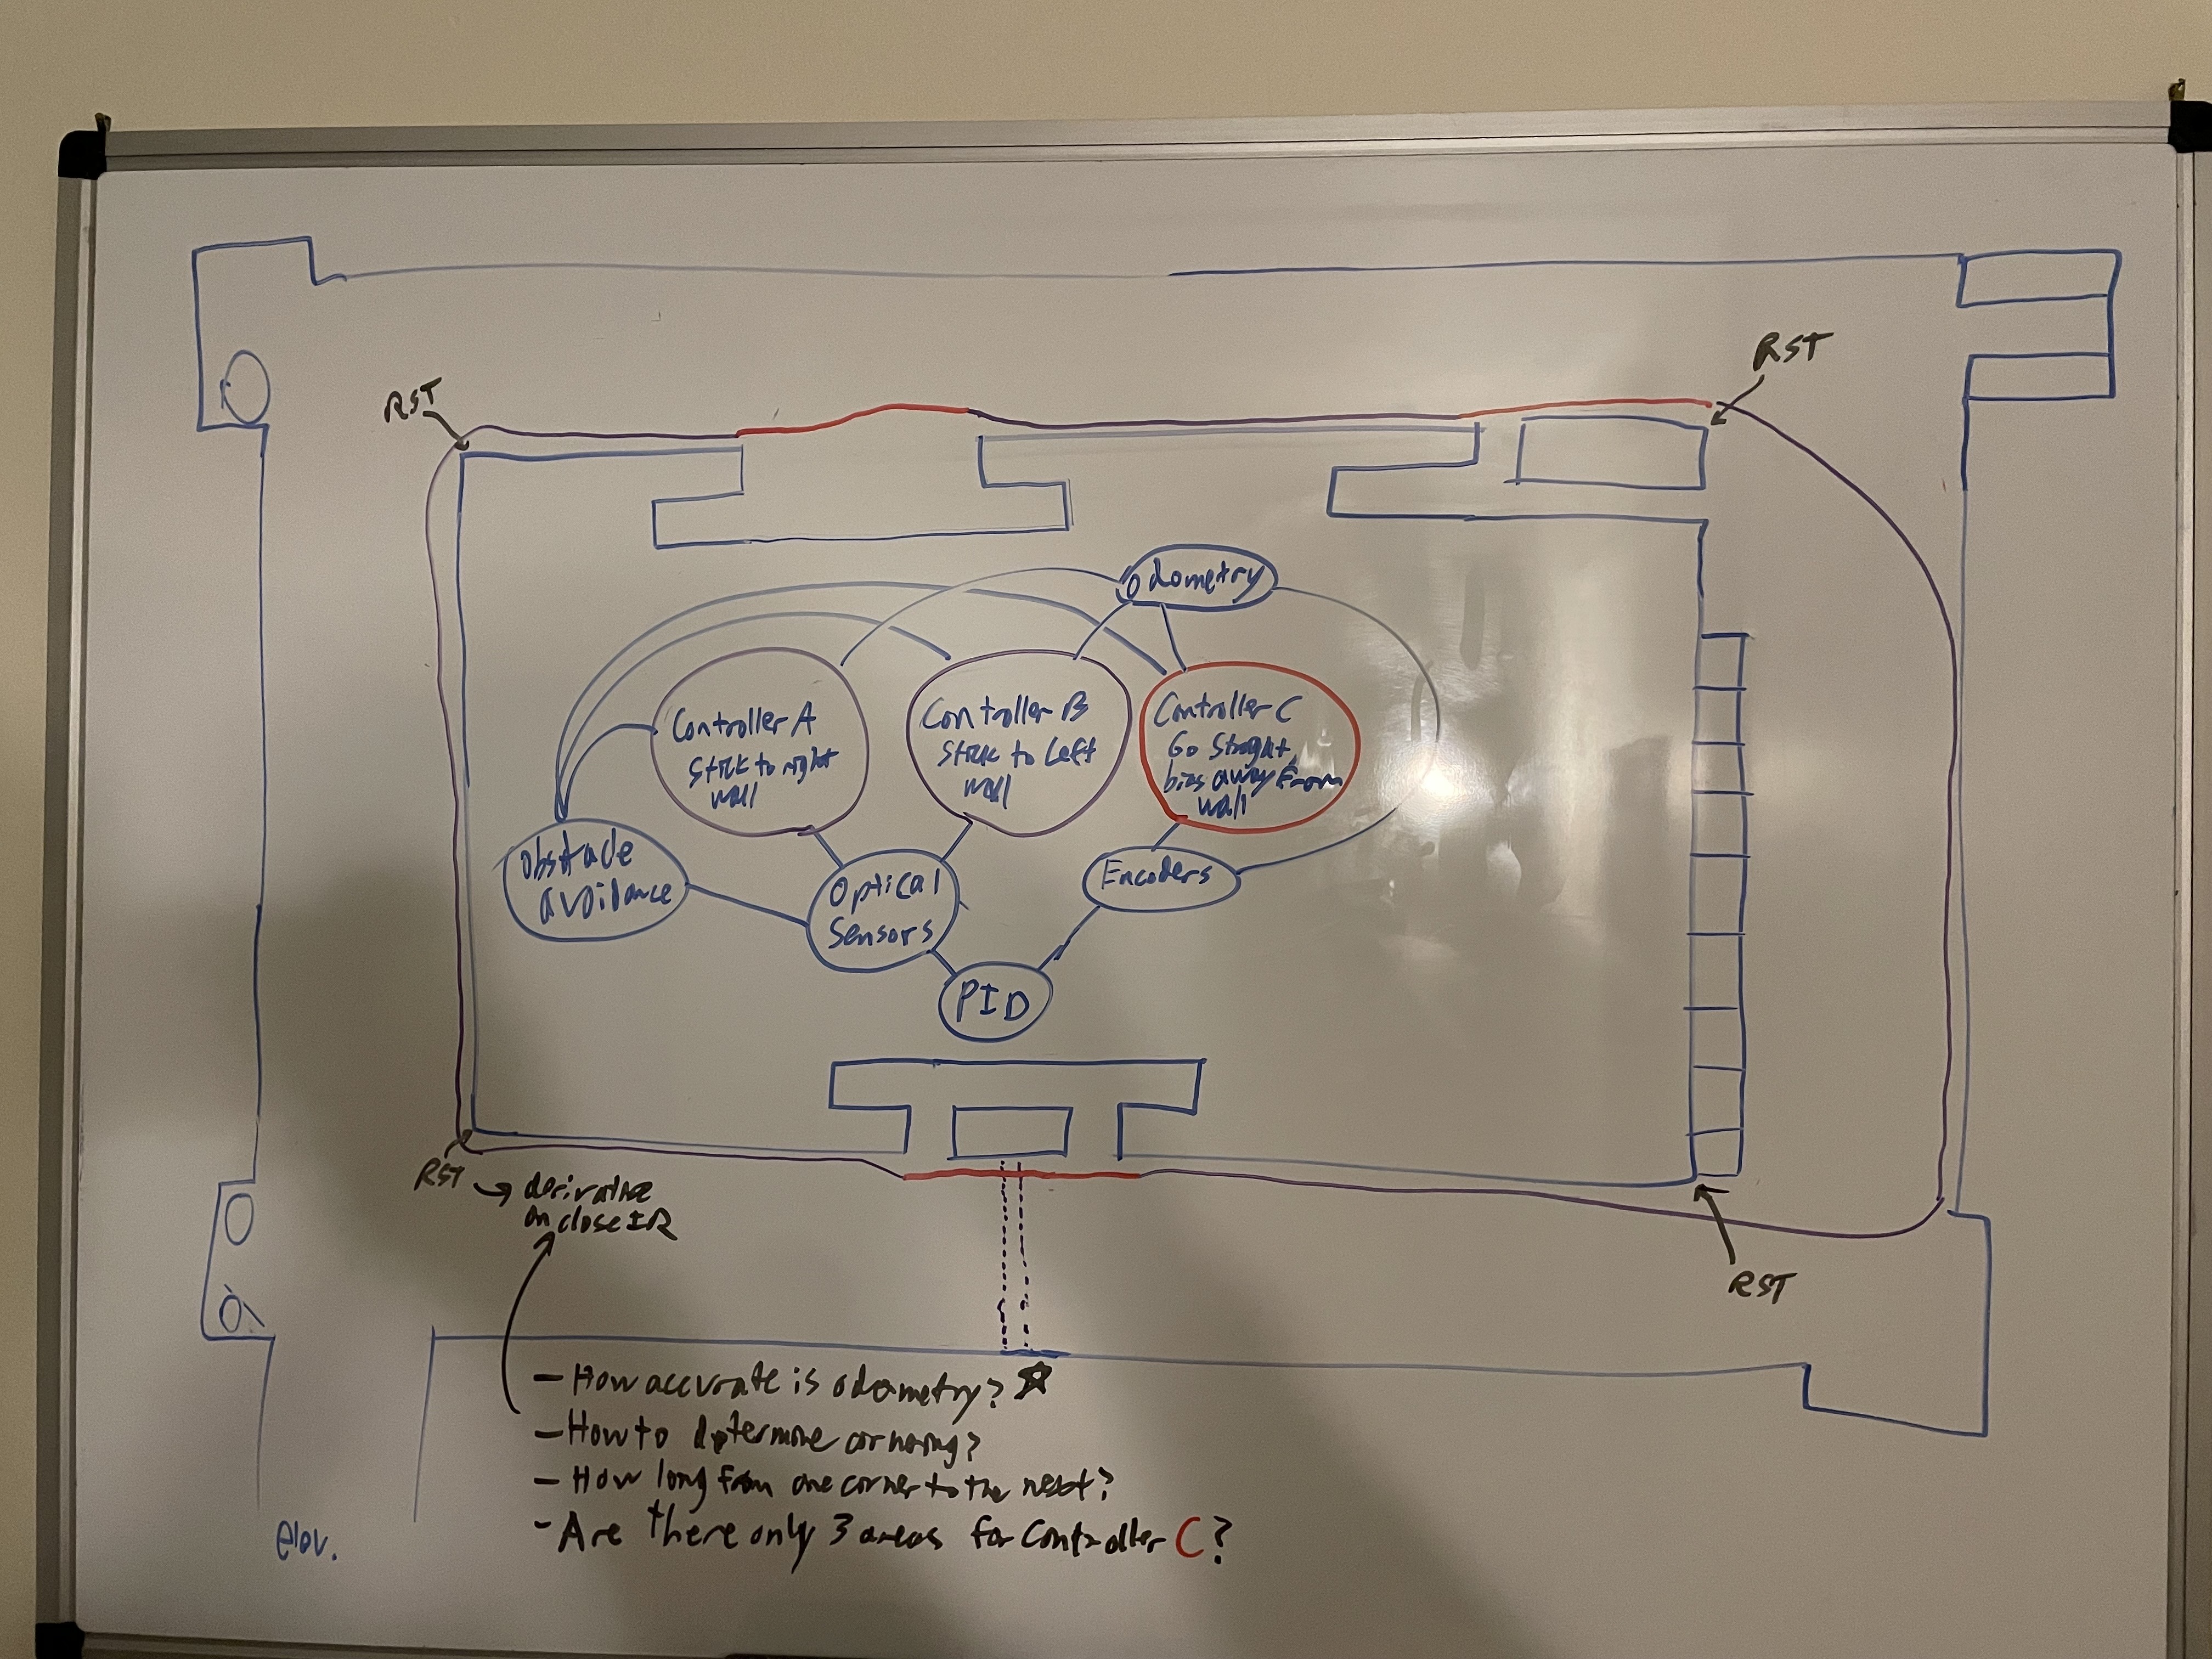 RST
RST
Odometry
Controller A
Stick to right
wall
Controller B
Stick to Left
wall
Controller C
Go Straght,
bias away From
wall
Obstacle
avoidance
Optical
Sensors
Encoders
PID
RST → derivative
on close IR
RST
- How accurate is odometry? ☆
- How to determine cornering?
- How long from one corner to the next?
- Are there only 3 areas for Controller C?
elev.